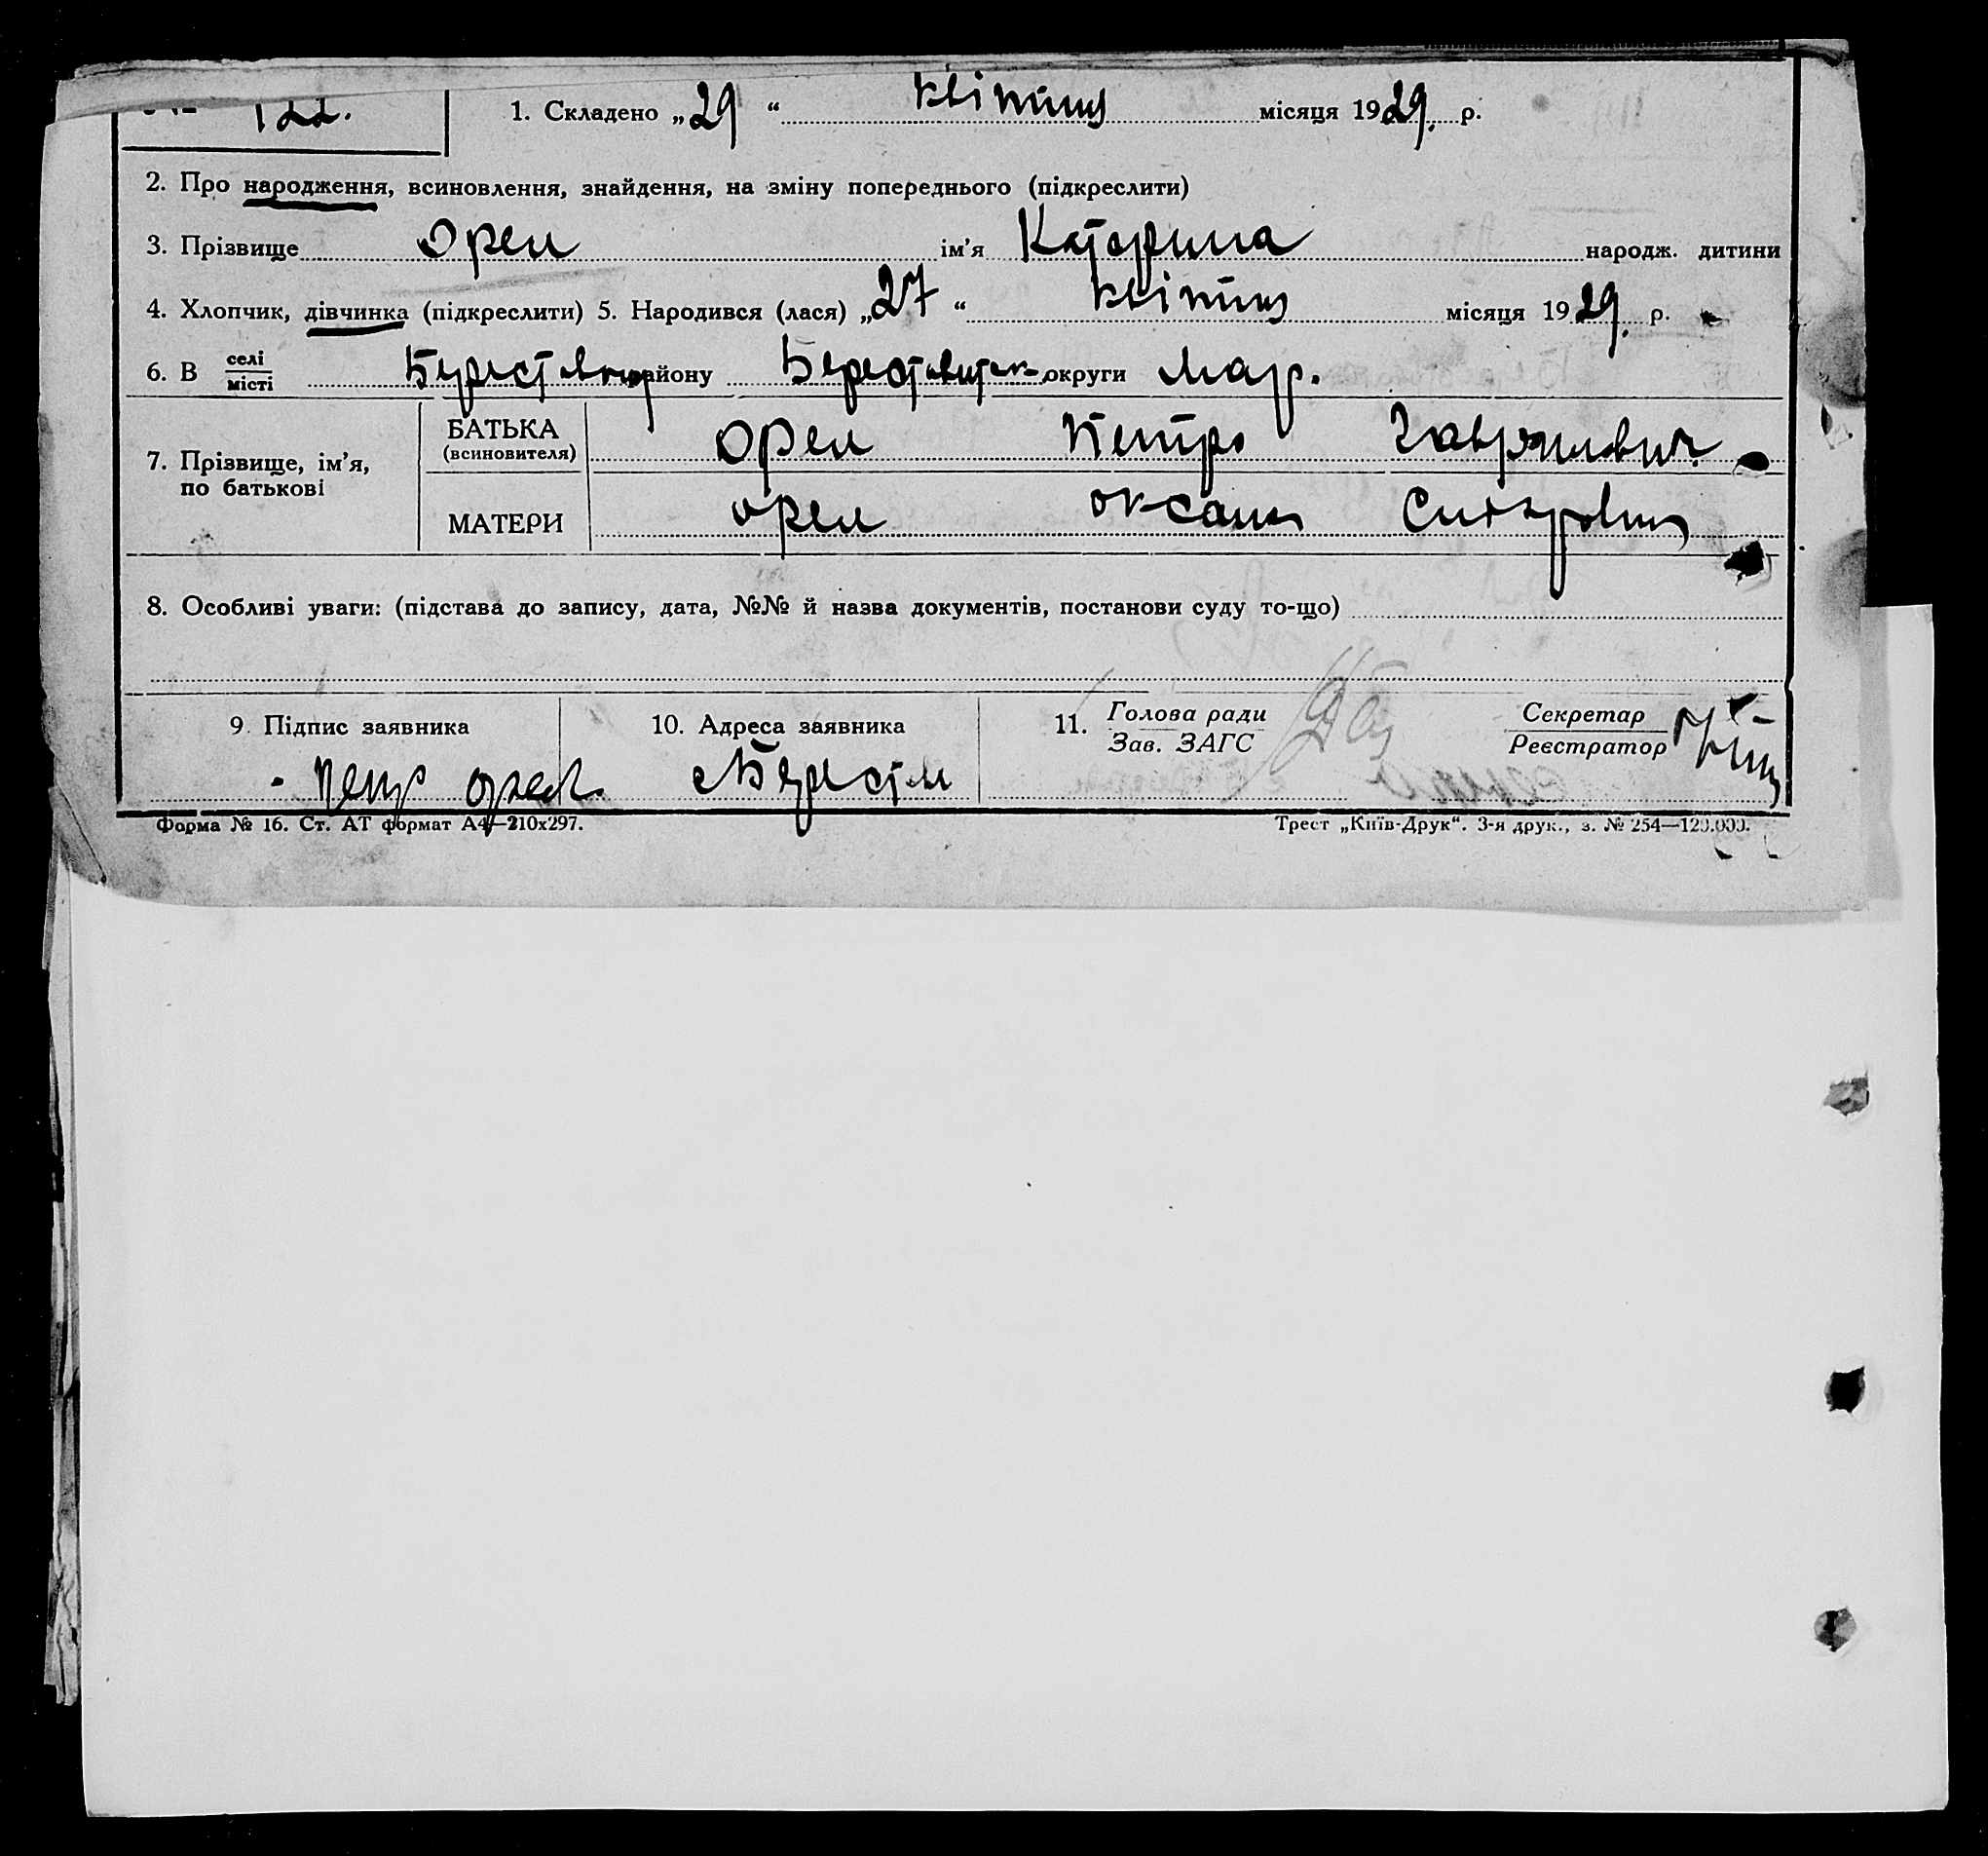 122.
1. Складено „29“ квітня місяця 1929. р.
2. Про народження, всиновлення, знайдення, на зміну попереднього (підкреслити)
3. Прізвище Орел ім’я Катерина народж. дитини
4. Хлопчик, дівчинка (підкреслити) 5. Народився (лася) „27“ квітня місяця 1929. р.
6. В селі/місті району округи Мар.
7. Прізвище, ім’я, по батькові
БАТЬКА (всиновителя) Орел Петро Гаврилович
МАТЕРИ Орел Оксана
8. Особливі уваги: (підстава до запису, дата, №№ й назва документів, постанови суду то-що)
9. Підпис заявника 10. Адреса заявника 11. Голова ради/Зав. ЗАГС Секретар/Реєстратор
Форма № 16. Ст. АТ формат А4—210х297. Трест „Київ-Друк“. 3-я друк., з. № 254—120.000.